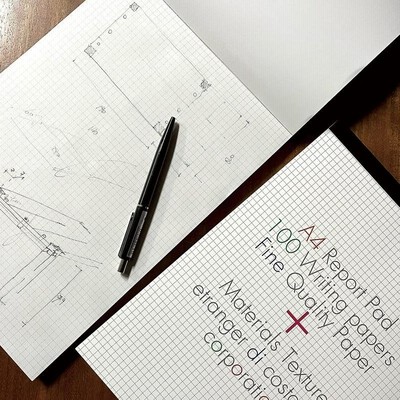 A4 Report Pad
100 Writing papers
Fine Quality Paper
Materials Texture
etranger di costa
corporatio